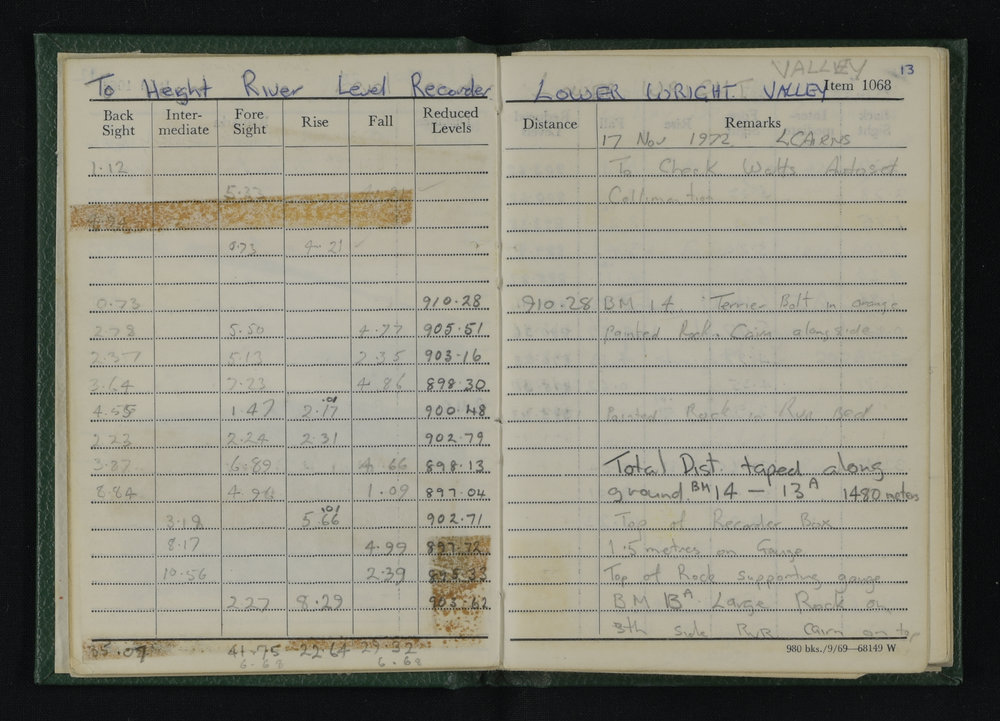 To Height River Level Recorder
Back Sight Inter-mediate Fore Sight Rise Fall Reduced Levels
1.12
5.33
0.73 4.21
0.73 910.28
2.78 5.50 4.77 905.51
2.37 5.13 2.35 903.16
3.64 7.23 4.86 898.30
4.55 1.47 2.17 .01 900.48
2.23 2.24 2.31 902.79
3.87 6.89 4.66 898.13
8.84 4.96 1.09 897.04
3.18 5.66 .01 902.71
8.17 4.99 897.72
10.56 2.39 895.33
2.27 8.29 903.62
35.07 41.75 22.64 29.32
6.68 6.68
VALLEY 13
LOWER WRIGHT VALLEY Item 1068
Distance Remarks
17 Nov 1972 LCAIRNS
To Check Watts Autoset
Collimation
910.28 BM 14 Terrier Bolt in orange
painted Rock. Cairn alongside
Painted Rock in Rvr Bed
Total Dist. taped along
ground BM 14 — 13A 1480 meters
Top of Recorder Box
1.5 metres on Gauge
Top of Rock supporting gauge
BM 13A Large Rock on
Sth side RVR Cairn on top
980 bks./9/69—68149 W